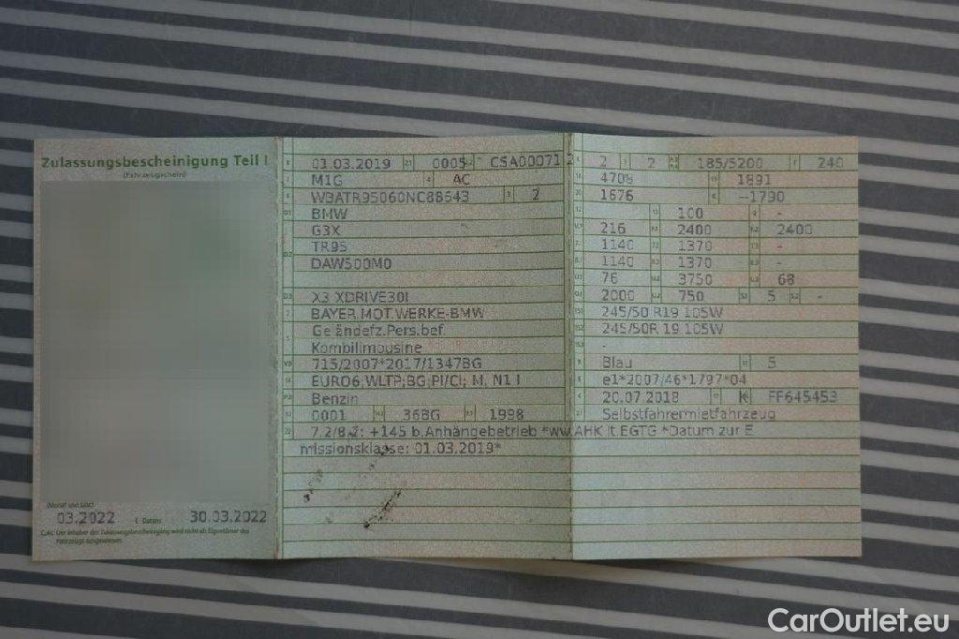 Zulassungsbescheinigung Teil I
(Fahrzeugschein)
03.2022
30.03.2022
01.03.2019 0005 CSA00071 2
M1G AC
2
BMW
G3X
TR95
DAW500M0
X3 XDRIVE30I
BAYER.MOT.WERKE-BMW
Geländefz.Pers.bef.
Kombilimousine
715/2007*2017/1347BG
EURO6;WLTP;BG;PI/CI; M, N1 I
Benzin
0001 36BG 1998
7.2/8.2: +145 b.Anhängebetrieb *ww.AHK lt.EGTG *Datum zur E
missionsklasse: 01.03.2019*
2 2 185/5200 240
4708 1891
1676 -1790
100 -
216 2400 2400
1140 1370 -
1140 1370 -
76 3750 68
2000 750 5 -
245/50 R19 105W
245/50R 19 105W
-
Blau 5
e1*2007/46*1797*04
20.07.2018 K FF645453
Selbstfahrermietfahrzeug
CarOutlet.eu